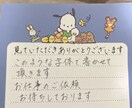 見ていただきありがとうございます
このような字体で書かせて
頂きます
お仕事のご依頼
お待ちしております